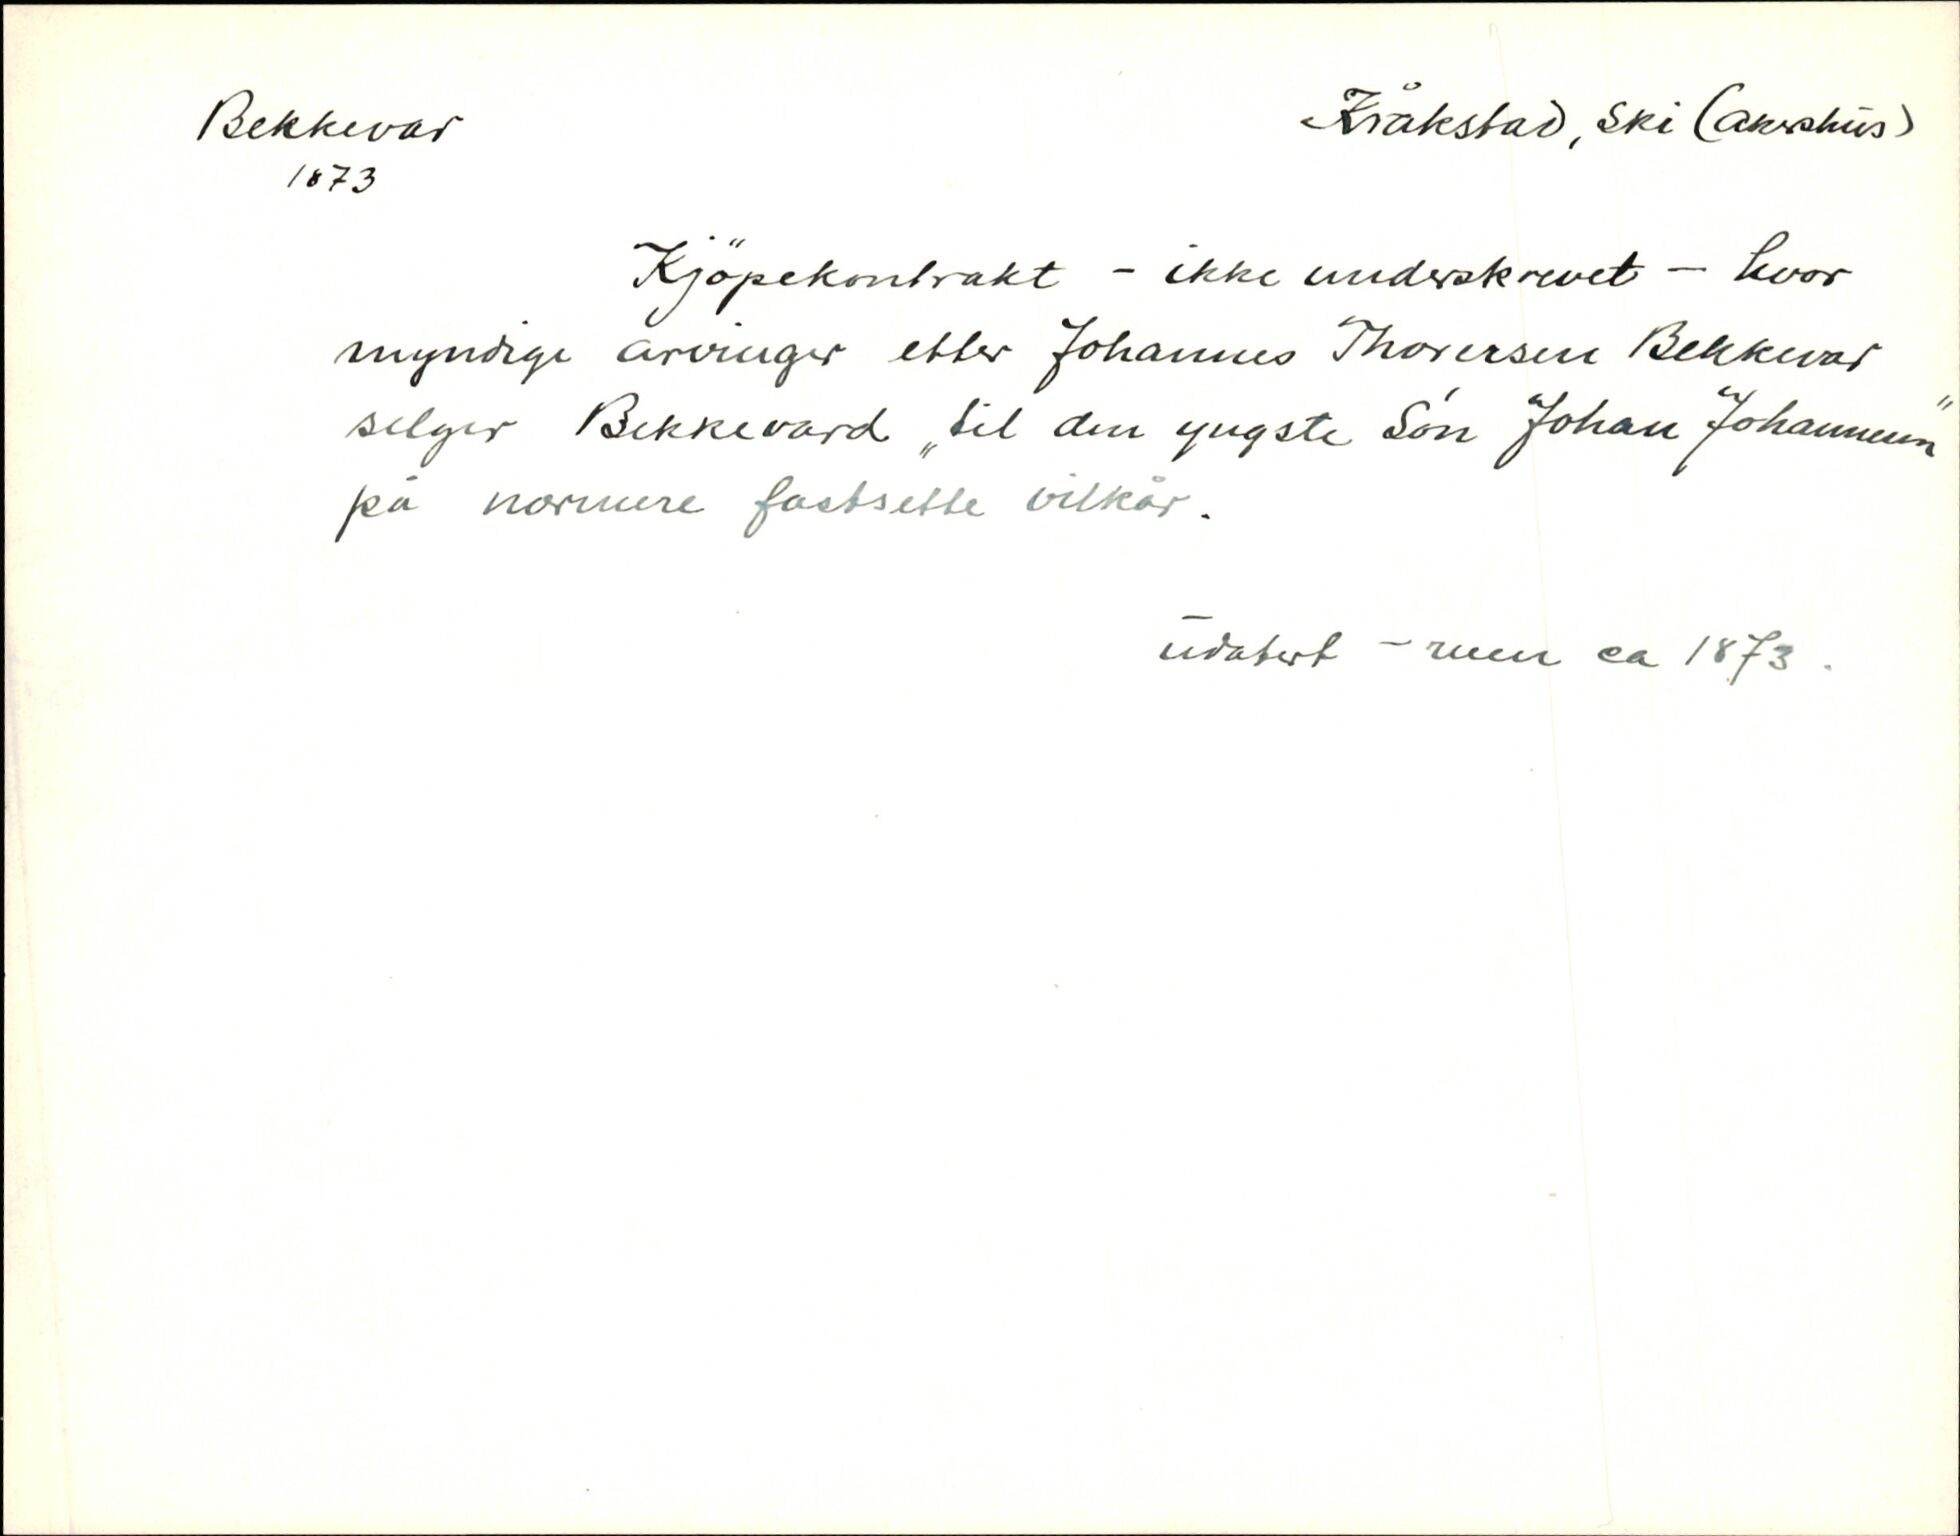 Bekkevar
1873
Kråkstad, Ski (Akershus)
Kjöpekontrakt - ikke underskrevet - hvor
myndige arvinger etter Johannes Thorersen Bekkevar
selger Bekkevard „til den yngste Són Johan Johannesen"
på nærmere fastsette vilkår.
udatert - men ca 1873.